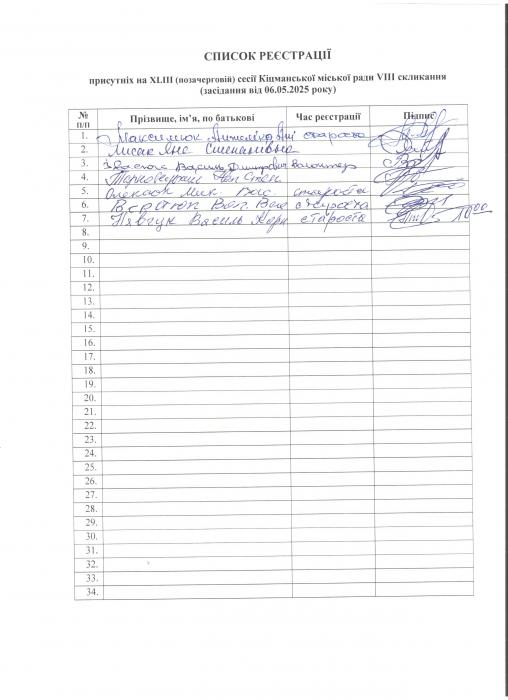 СПИСОК РЕЄСТРАЦІЇ
присутніх на XLIII (позачерговій) сесії Кіцманської міської ради VIII скликання
(засідання від 06.05.2025 року)
№ п/п Прізвище, ім’я, по батькові Час реєстрації Підпис
1. Максимюк староста
2. Лисак Яна Степанівна
3. Василь Дмитрович
4.
5. Мик. Вас. староста
6. Вол. староста
7. Василь староста 10 00
8.
9.
10.
11.
12.
13.
14.
15.
16.
17.
18.
19.
20.
21.
22.
23.
24.
25.
26.
27.
28.
29.
30.
31.
32.
33.
34.